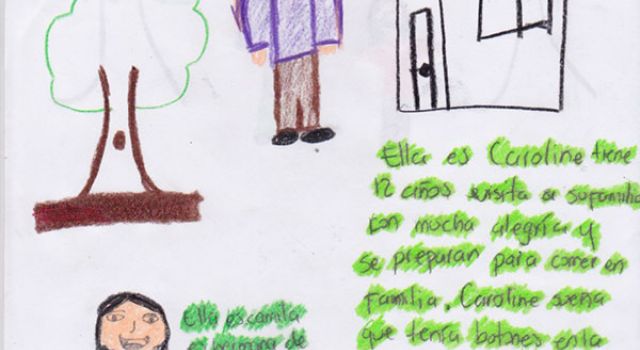 Ella es Caroline tiene
12 años visita a su familia
con mucha alegria y
se preparan para comer en
familia. Caroline
que tenia botones en la
Ella es camila
es hermana de